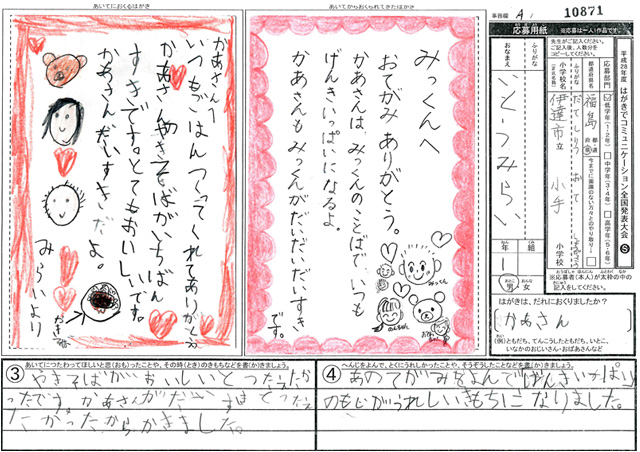 あいてにおくるはがき
かあさんへ
いつもごはんつくってくれてありがとう。
かあさんのやきそばがいちばん
すきです。とてもおいしいです。
かあさんだいすきだよ。
みらいより
あいてからおくられてきたはがき
みっくんへ
おてがみ ありがとう。
かあさんは、みっくんのことばで いつも
げんきいっぱいになるよ。
かあさんも みっくんが だいだいだいすき
です。
みっくん
事務欄 A
10871
応募用紙
※応募は一人1作品です。
先生がご記入ください。
ご記入後、人数分を
コピーしてください。
平成28年度 はがきでコミュニケーション全国発表大会 S
応募部門
低学年(1・2年)
中学年(3・4年)
高学年(5・6年)
都道府県名
福島
都 道 府 県
今までに面識のない方々とのやり取り
ふりがな
小学校名
伊達市立 小手 小学校
ふりがな
おなまえ
ごとうみらい
年 1 組
男 女
※応募者(本人)が太枠の中の
記入をしてください。
はがきは、だれにおくりましたか?
かあさん
(例)ともだち、てんこうしたともだち、いとこ、
いなかのおじいさん・おばあさんなど
③
あいてにつたわってほしいと思(おも)ったことや、その時(とき)のきもちなどを書(か)きましょう。
やきそばがおいしいとつたえたか
ったです。かあさんがだいすきとつたえ
たかったからかきました。
④
へんじをよんで、とくにうれしかったことや、そうぞうしたことなどを書(か)きましょう。
あのてがみをよんでげんきいっぱい
のもじがうれしいきもちになりました。